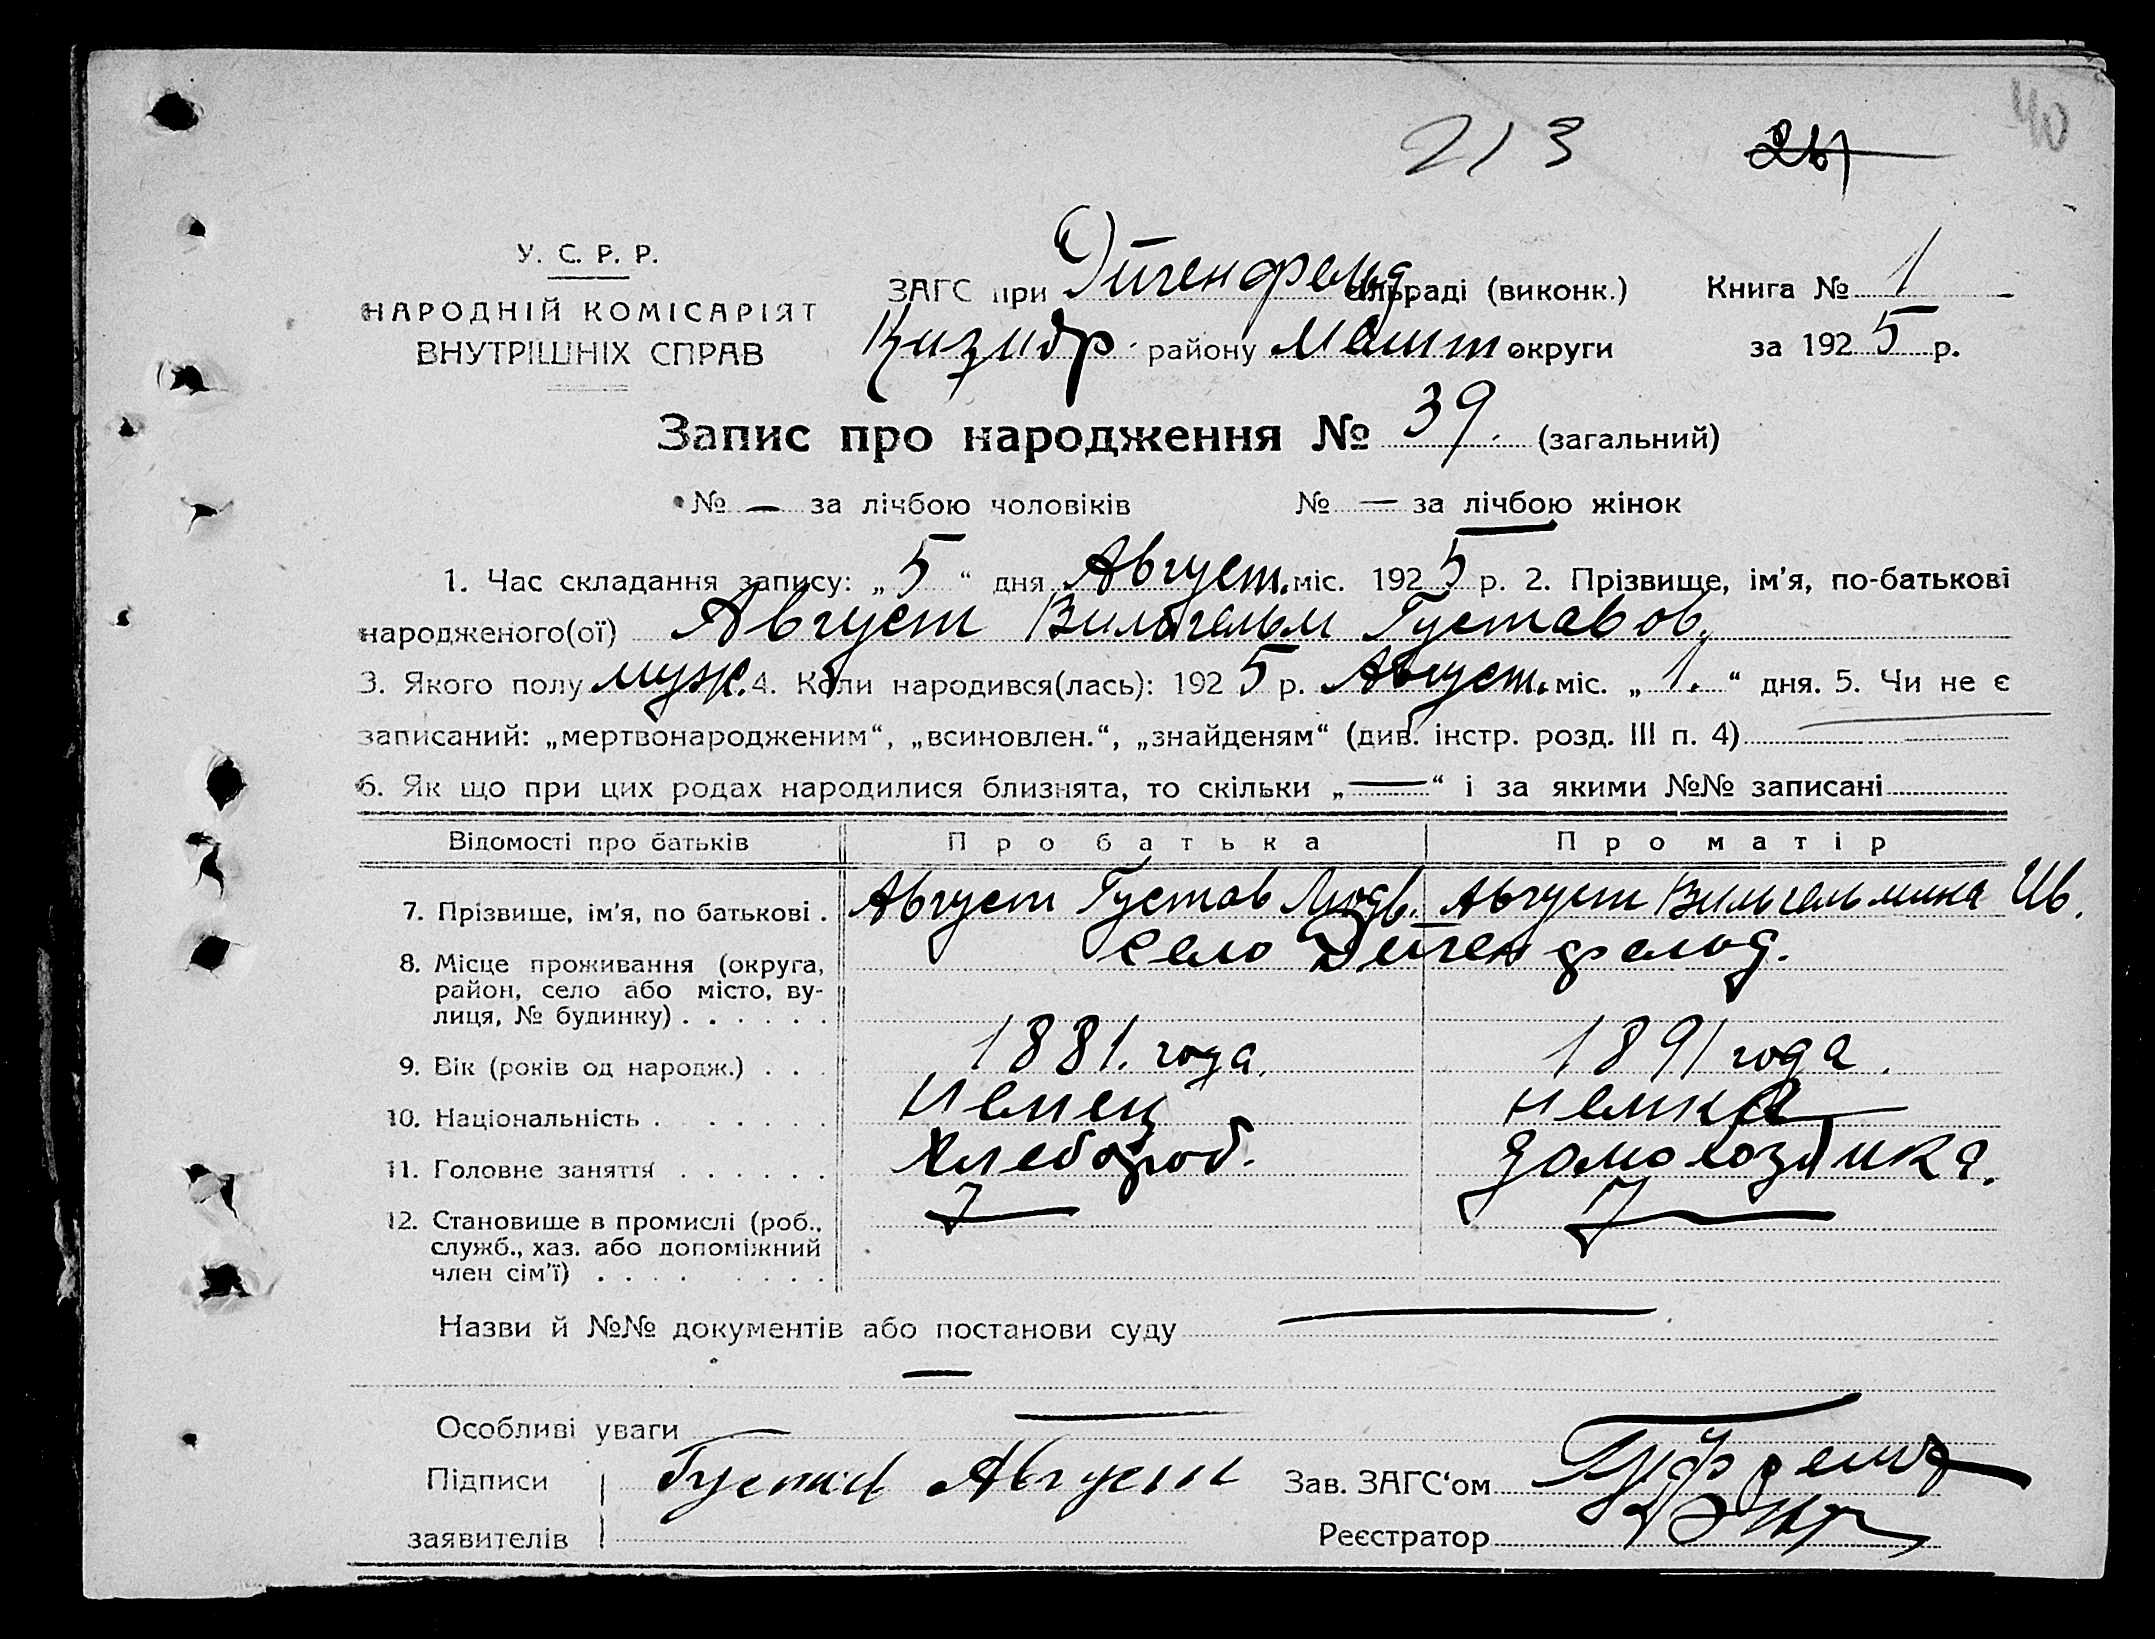 40
213 24
У. С. Р. Р.
НАРОДНІЙ КОМІСАРІЯТ
ВНУТРІШНІХ СПРАВ
ЗАГС при Эйгенфельд сільраді (виконк.) Книга № 1
району Мелит округи за 1925 р.
Запис про народження № 39. (загальний)
№ — за лічбою чоловіків № — за лічбою жінок
1. Час складання запису: „5“ дня Август. міс. 1925 р. 2. Прізвище, ім'я, по-батькові
народженого(ої) Август Вильгельм Густавов.
3. Якого полу муж. 4. Коли народився(лась): 1925 р. Август. міс. „1.“ дня. 5. Чи не є
записаний: „мертвонародженим“, „всиновлен.“, „знайденям“ (див. інстр. розд. III п. 4) —
6. Як що при цих родах народилися близнята, то скільки „—“ і за якими №№ записані
Відомості про батьків Про батька Про матір
7. Прізвище, ім'я, по батькові . Август Густав Людв. Август Вильгельмина Ив.
8. Місце проживання (округа, село Эйгенфельд.
район, село або місто, ву-
лиця, № будинку) . . . . . .
9. Вік (років од народж.) . . . 1881. года. 1891 года.
10. Національність . . . . . . . Немец немка
11. Головне заняття . . . . . . Хлебороб. домохозяйка.
12. Становище в промислі (роб.,
служб., хаз. або допоміжний
член сім'ї) . . . . . . . .
Назви й №№ документів або постанови суду —
—
Особливі уваги —
Підписи Густав Август Зав. ЗАГС'ом
заявителів Реєстратор